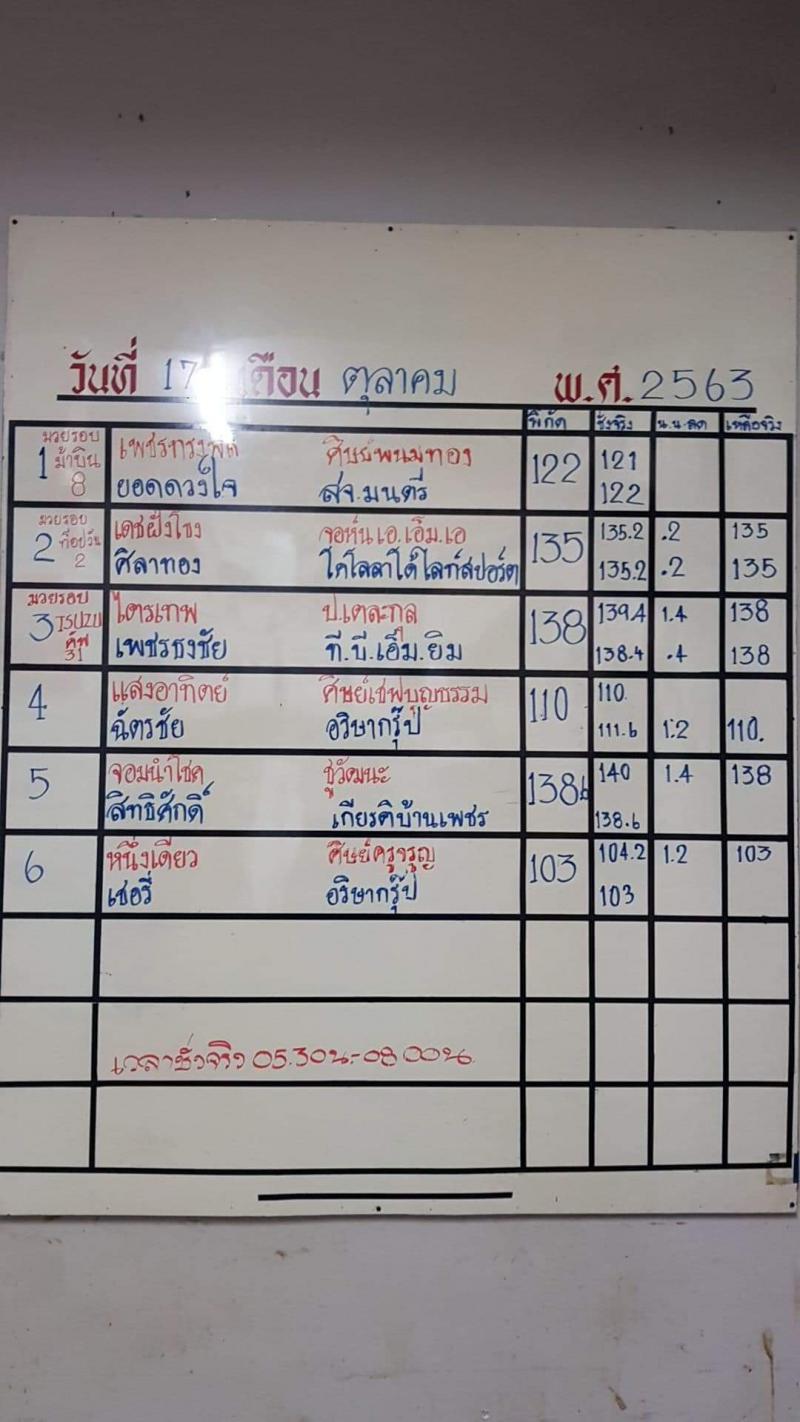 วันที่ 17 เดือน ตุลาคม พ.ศ. 2563
พิกัด ชั่งจริง น.น.ลด เหลือจริง
มวยรอบ
1 ม้าบิน
8
เพชรทรงพล ศิษย์พนมทอง 122 121
ยอดดวงใจ สจ.มนตรี 122
มวยรอบ
2 ที่อปวัน
2
เดชฝั่งโขง จอห์นเอ.เอ็ม.เอ 135 135.2 .2 135
ศิลาทอง โคโลลาโด้ไลท์สปอร์ต 135.2 .2 135
มวยรอบ
3 ISUZU
คัพ
31
ไตรเทพ ป.เตละกุล 138 139.4 1.4 138
เพชรธงชัย ที.บี.เอ็ม.ยิม 138.4 .4 138
4 แสงอาทิตย์ ศิษย์เชฟบุญธรรม 110 110.
ฉัตรชัย อริษากรุ๊ป 111.6 1.2 110.
5 จอมนำโชค ชูวัฒนะ 138.6 140 1.4 138
สิทธิศักดิ์ เกียรติบ้านเพชร 138.6
6 หนึ่งเดียว ศิษย์ครูจรูญ 103 104.2 1.2 103
เชอรี่ อริษากรุ๊ป 103
เวลาชั่งจริง 05.30น.-08.00น.